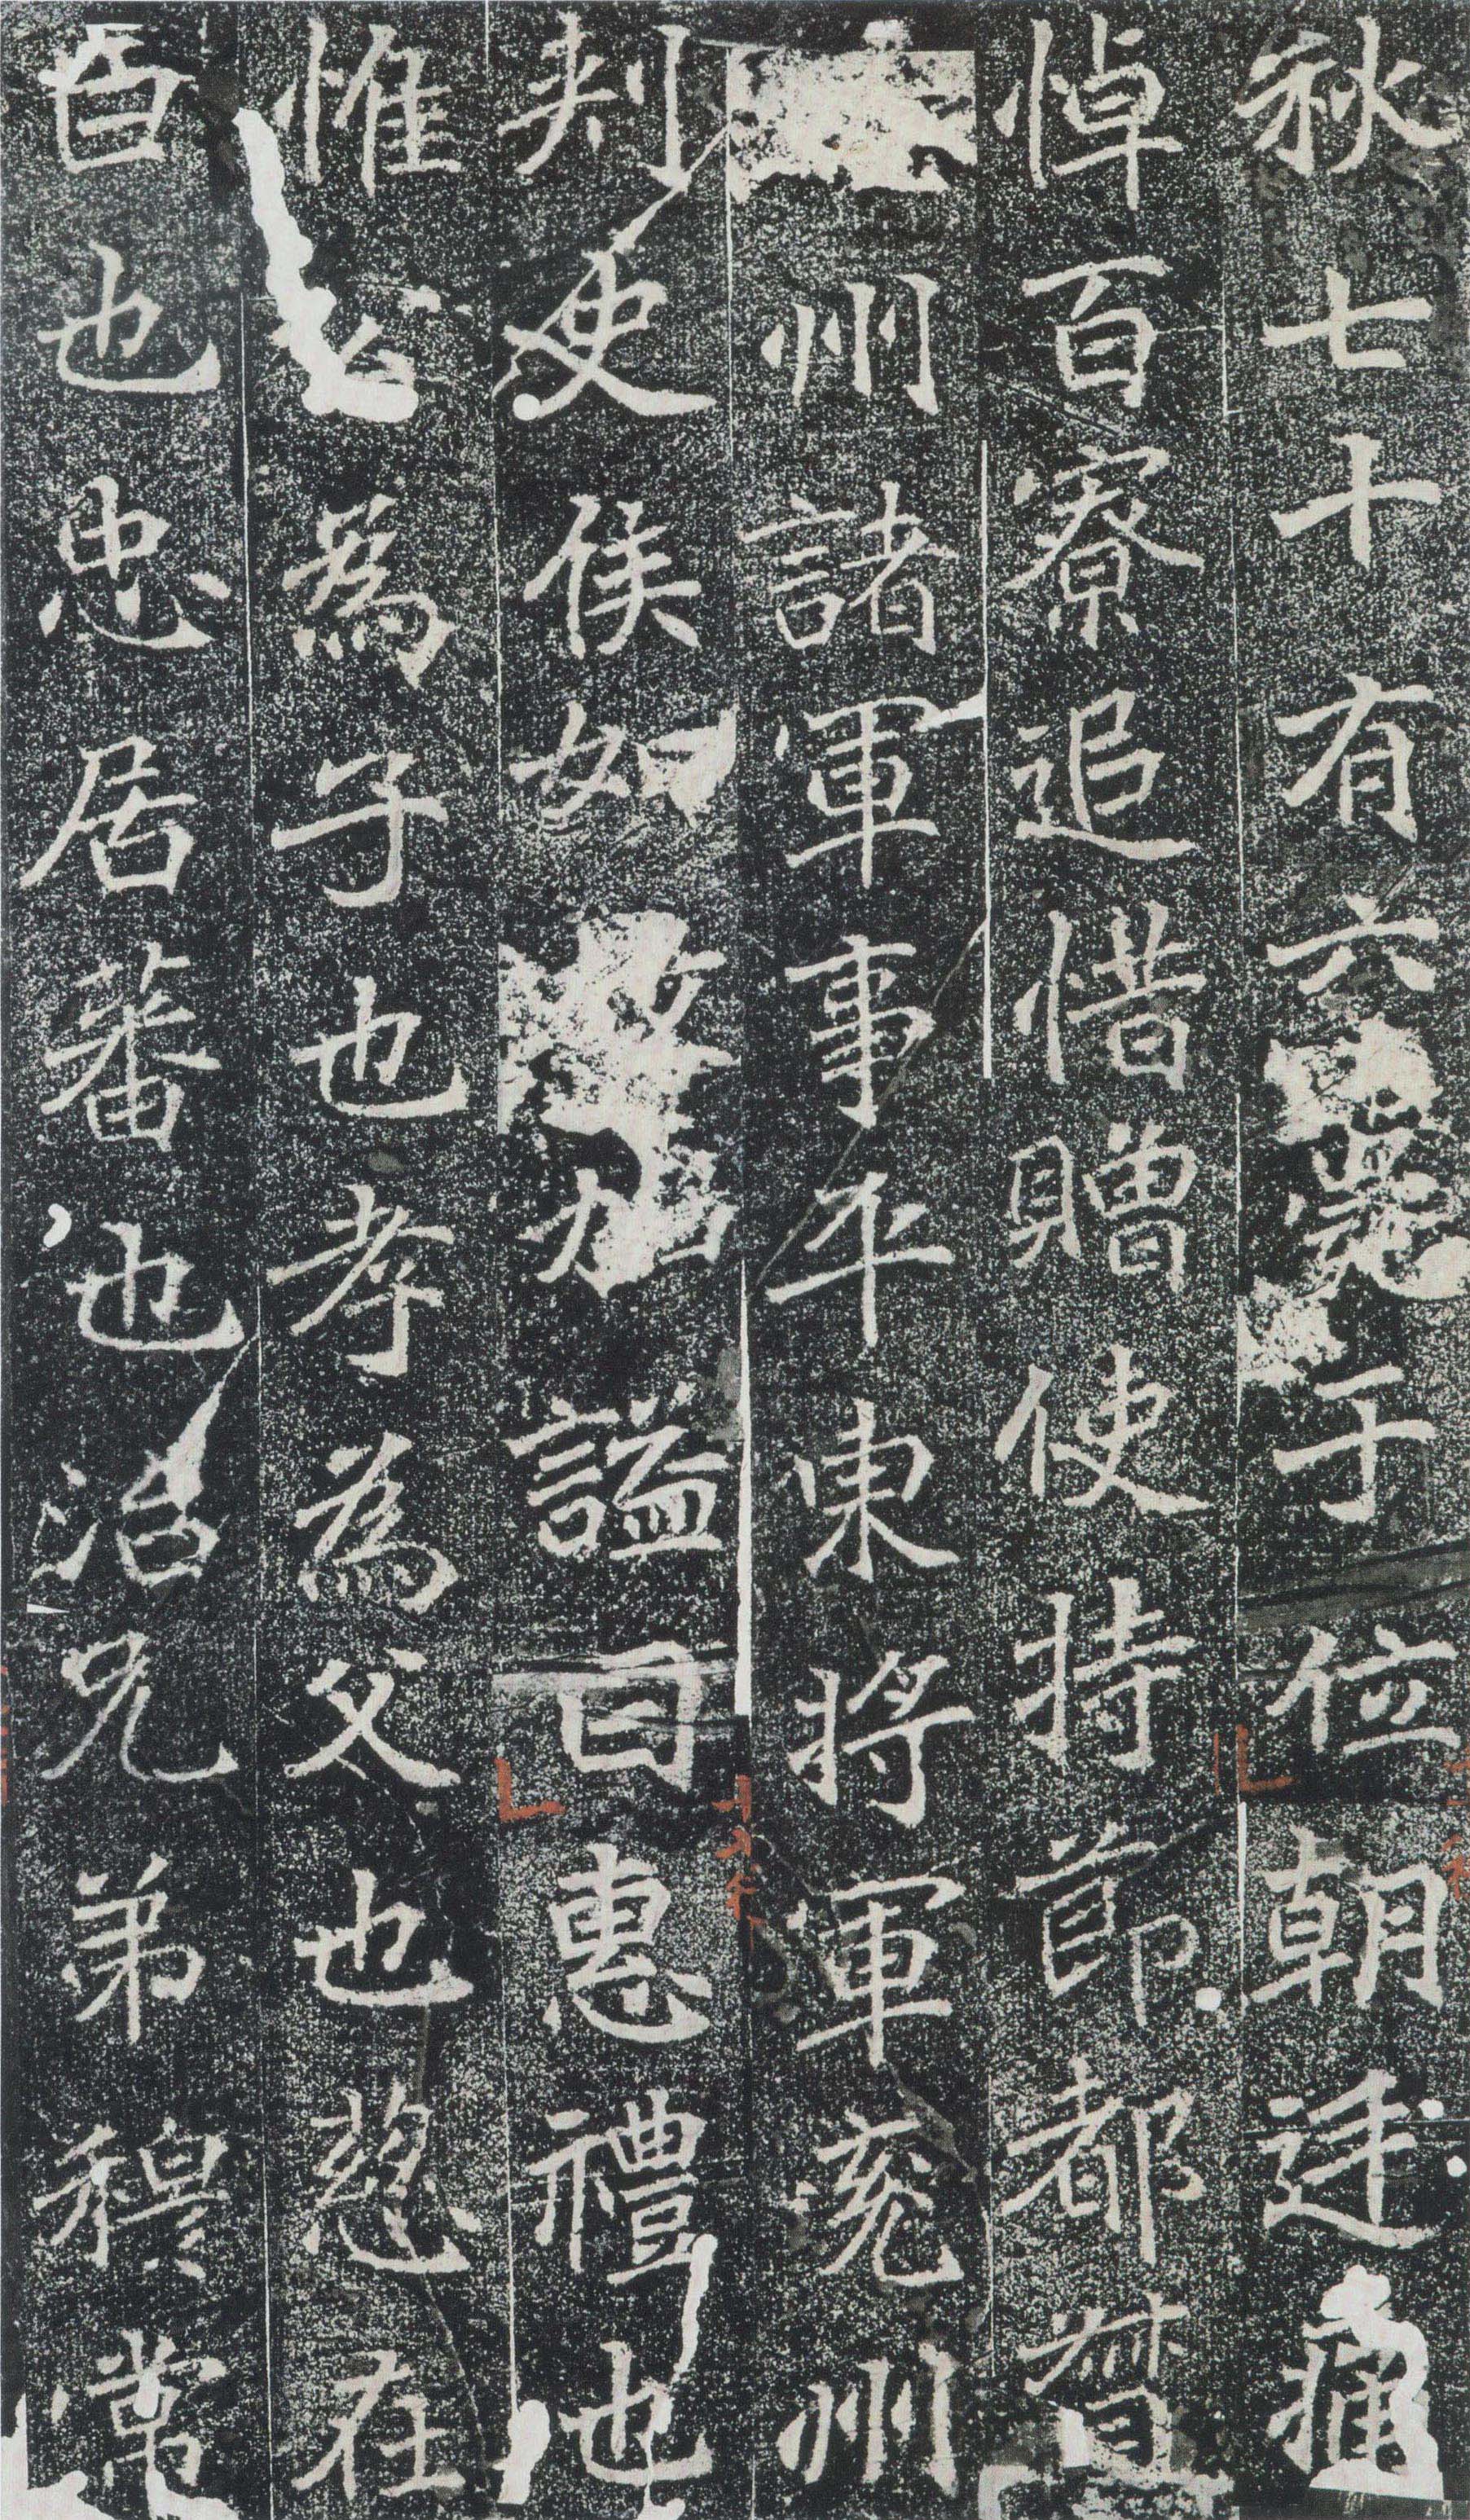 秋七十有六薨于位朝廷痛
悼百寮追惜贈使持節都督
州諸軍事平東將軍兖州
刺史侯如故加謚曰惠禮也
惟公為子也孝為父也慈在
臣也忠居蕃也治兄弟穆常